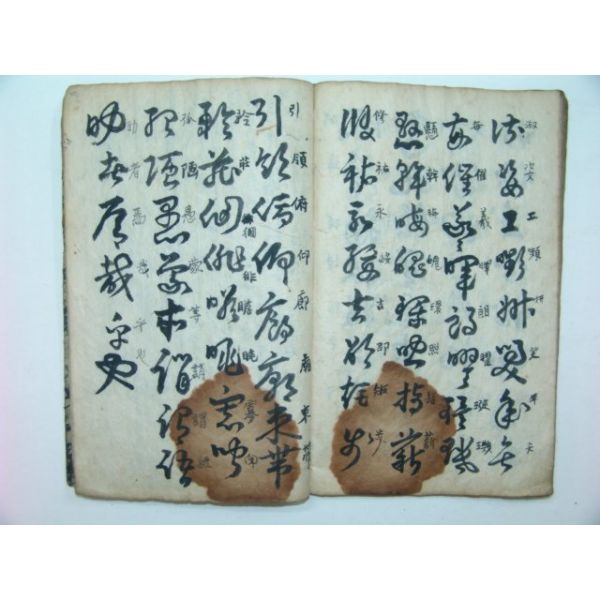 淑姿工顰妍笑年矢
每催羲暉朗曜璇璣
懸斡晦魄環照指薪
修祐永綏吉劭矩步
引領俯仰廊廟束帶
矜莊徊徘瞻眺寡聞
孤陋愚蒙等誚謂語
助者焉哉乎也